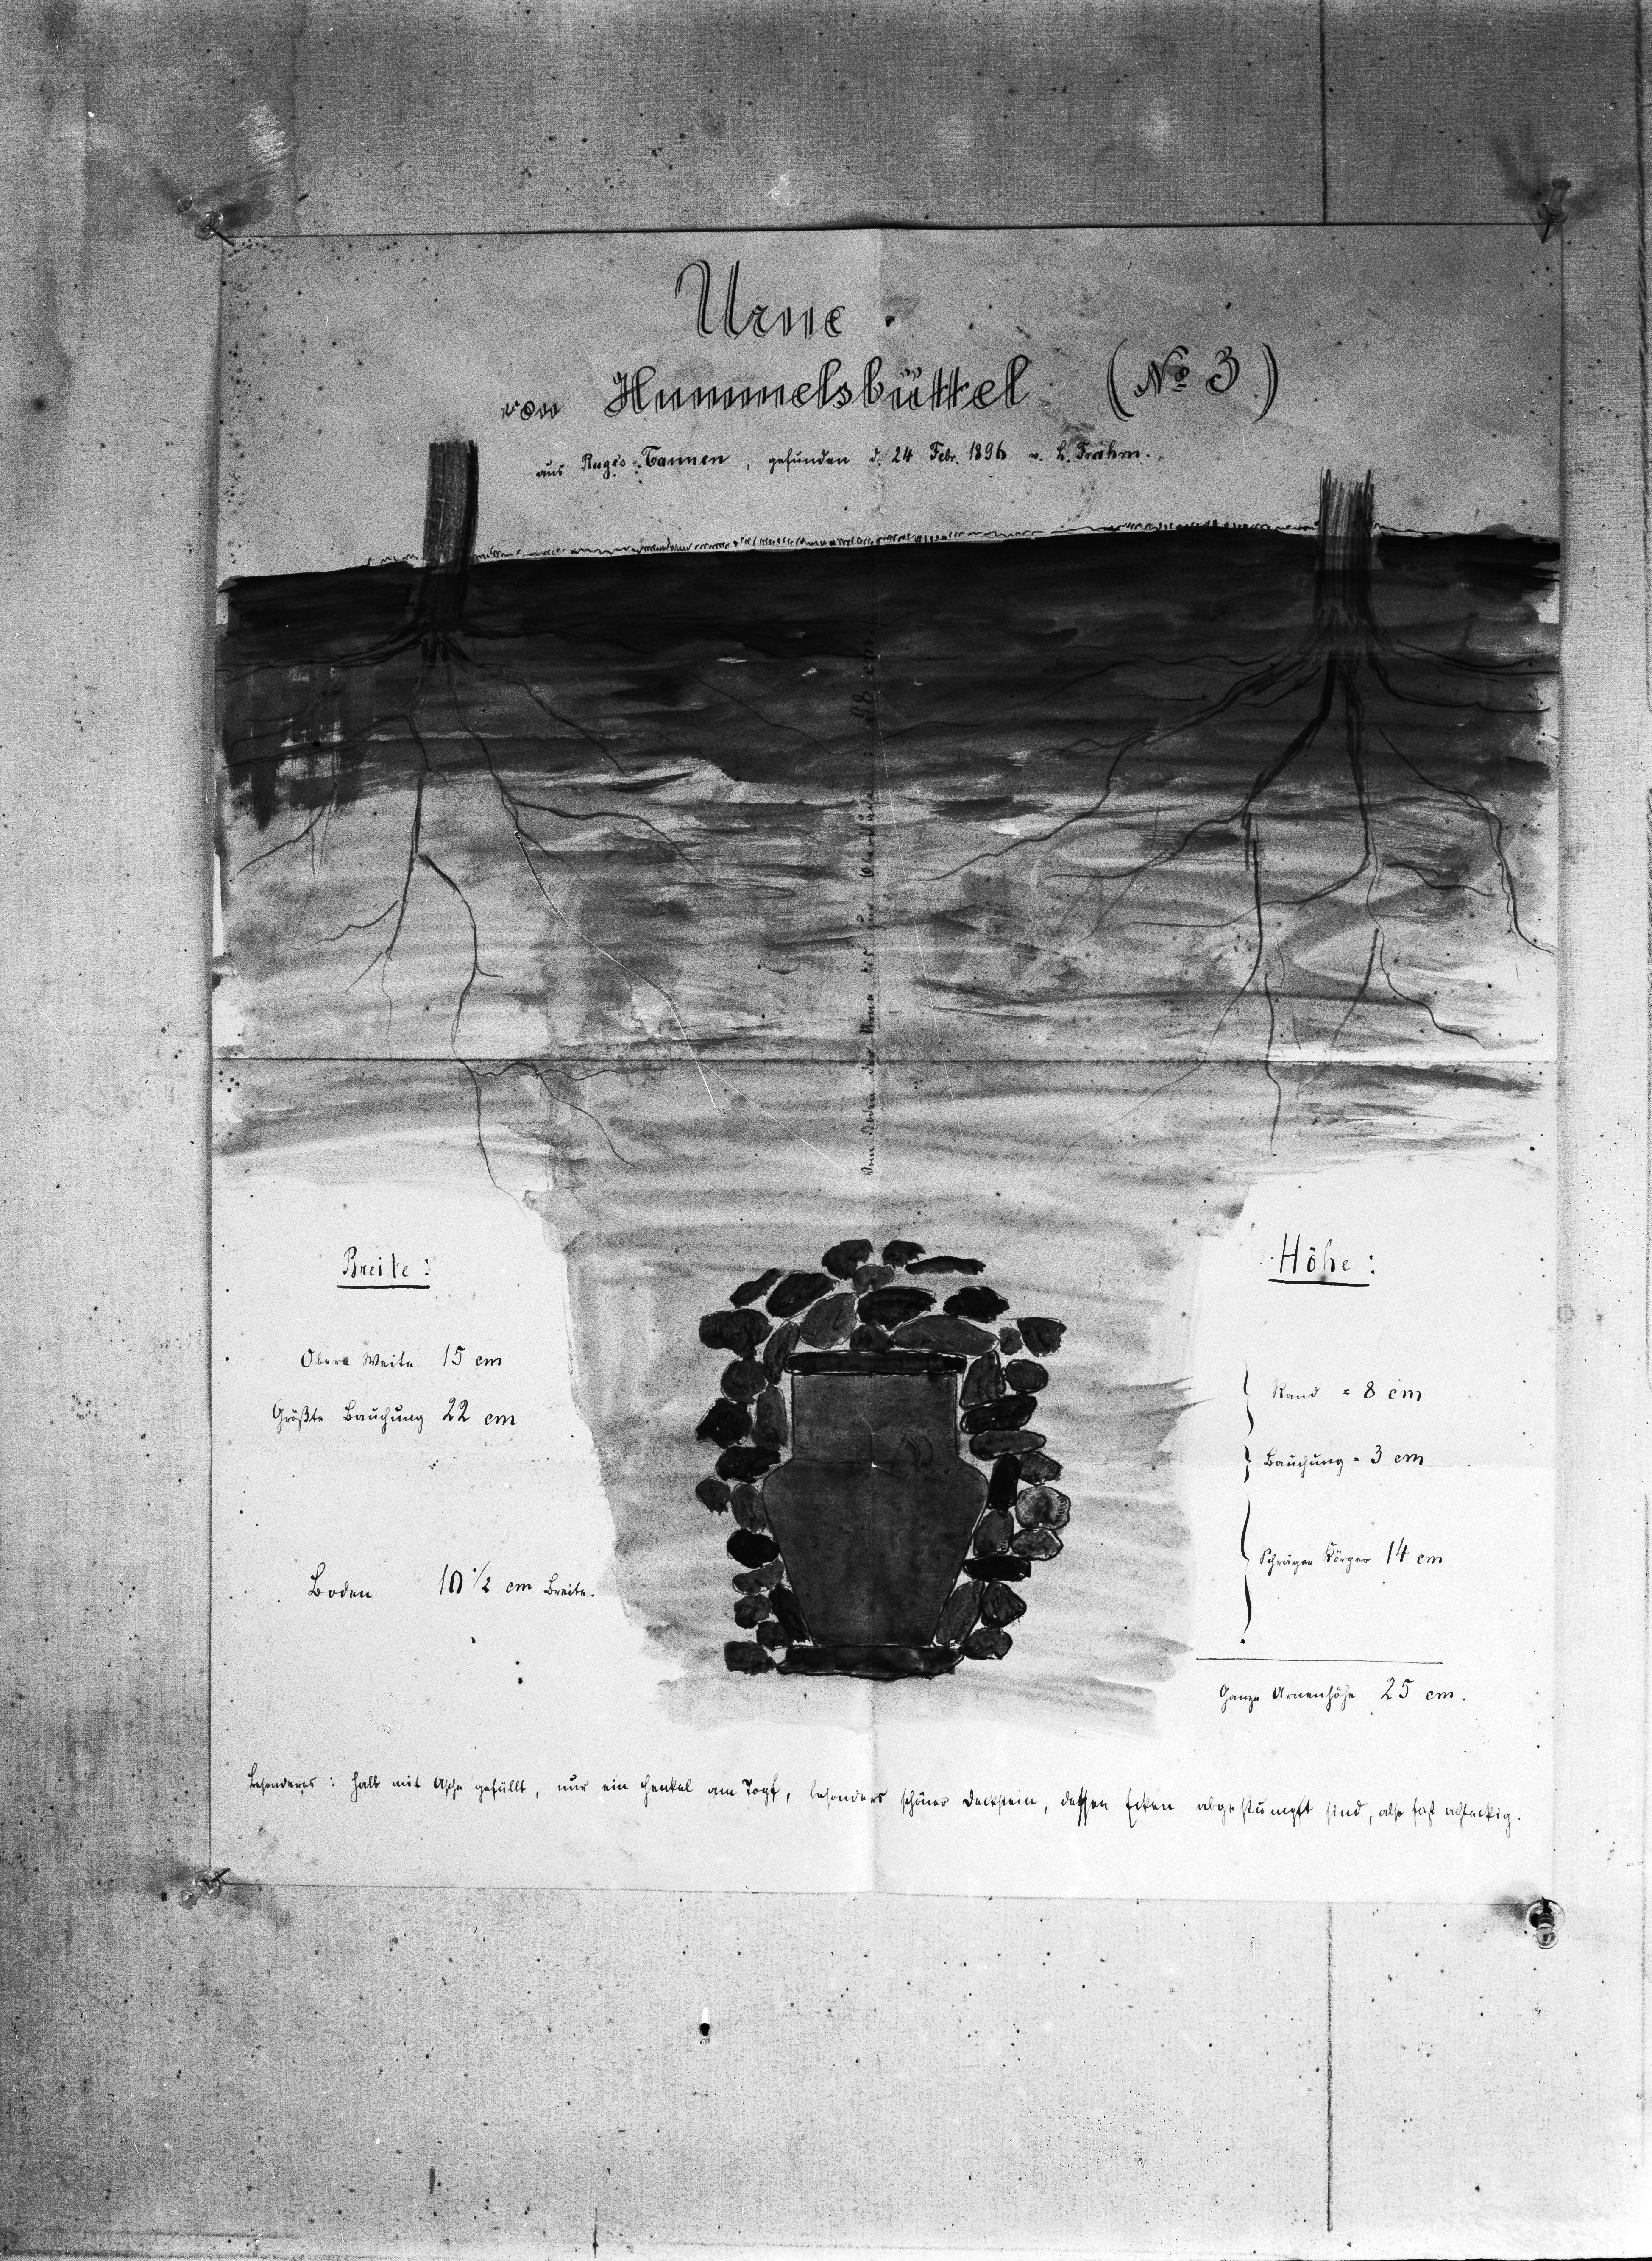 Urne
von Hummelsbüttel (No 3)
aus Ruge's Tannen, gefunden d. 24 Febr. 1896 v. L. Frahm.
Vom Boden der Urne bis zur Oberfläche 118 cm
Breite:
Obere Weite 15 cm
Größte Bauchung 22 cm
Boden 10 1/2 cm Breite.
Höhe:
Rand = 8 cm
Bauchung = 3 cm
Schräger Körper 14 cm
Ganze Urnenhöhe 25 cm.
Besonderes: halb mit Asche gefüllt, nur ein Henkel am Topf, besonders schöner Deckstein, dessen Ecken abgestumpft sind, also fast achteckig.